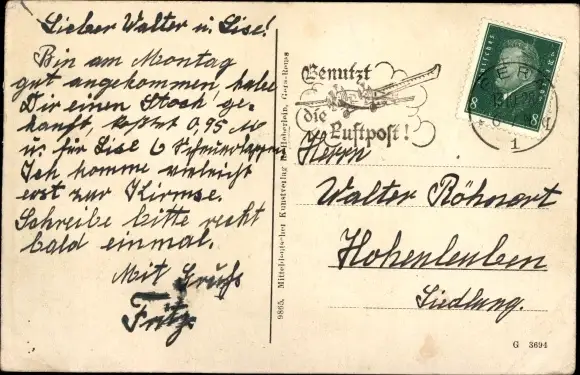 Lieber Walter u. Lise!
Bin am Montag
gut angekommen, habe
Dir einen Stock ge-
kauft, kostet 0,95 M
u. für Lise 6 Scheuerlappen
Ich komme vielleicht
erst zur Kirmse.
Schreibe bitte recht
bald einmal.
Mit Gruß
Fritz
9865. Mitteldeutscher Kunstverlag Haberlein, Gera-Reuss
Benutzt
die
Luftpost!
GERA
1
Deutsches Reich
8 8
Herrn
Walter Röhnert
Hohenleuben
Siedlung.
G 3694